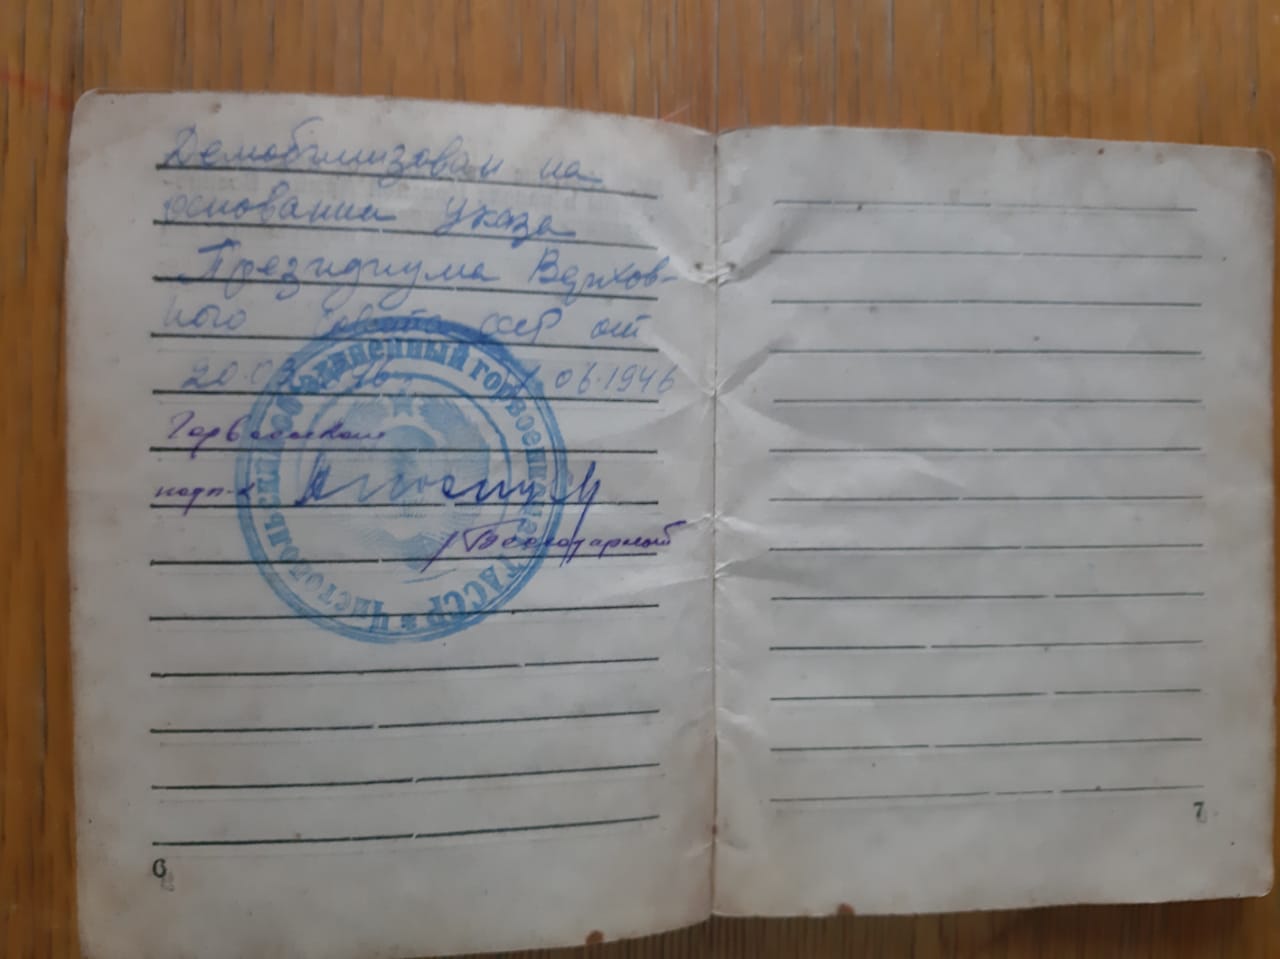 Демобилизован на
основании Указа
Президиума Верхов-
ного Совета СССР от
20.03 06.1946
Горвоенком
подп-к
Чистопольский объединенный горвоенкомат ТАССР
6
7